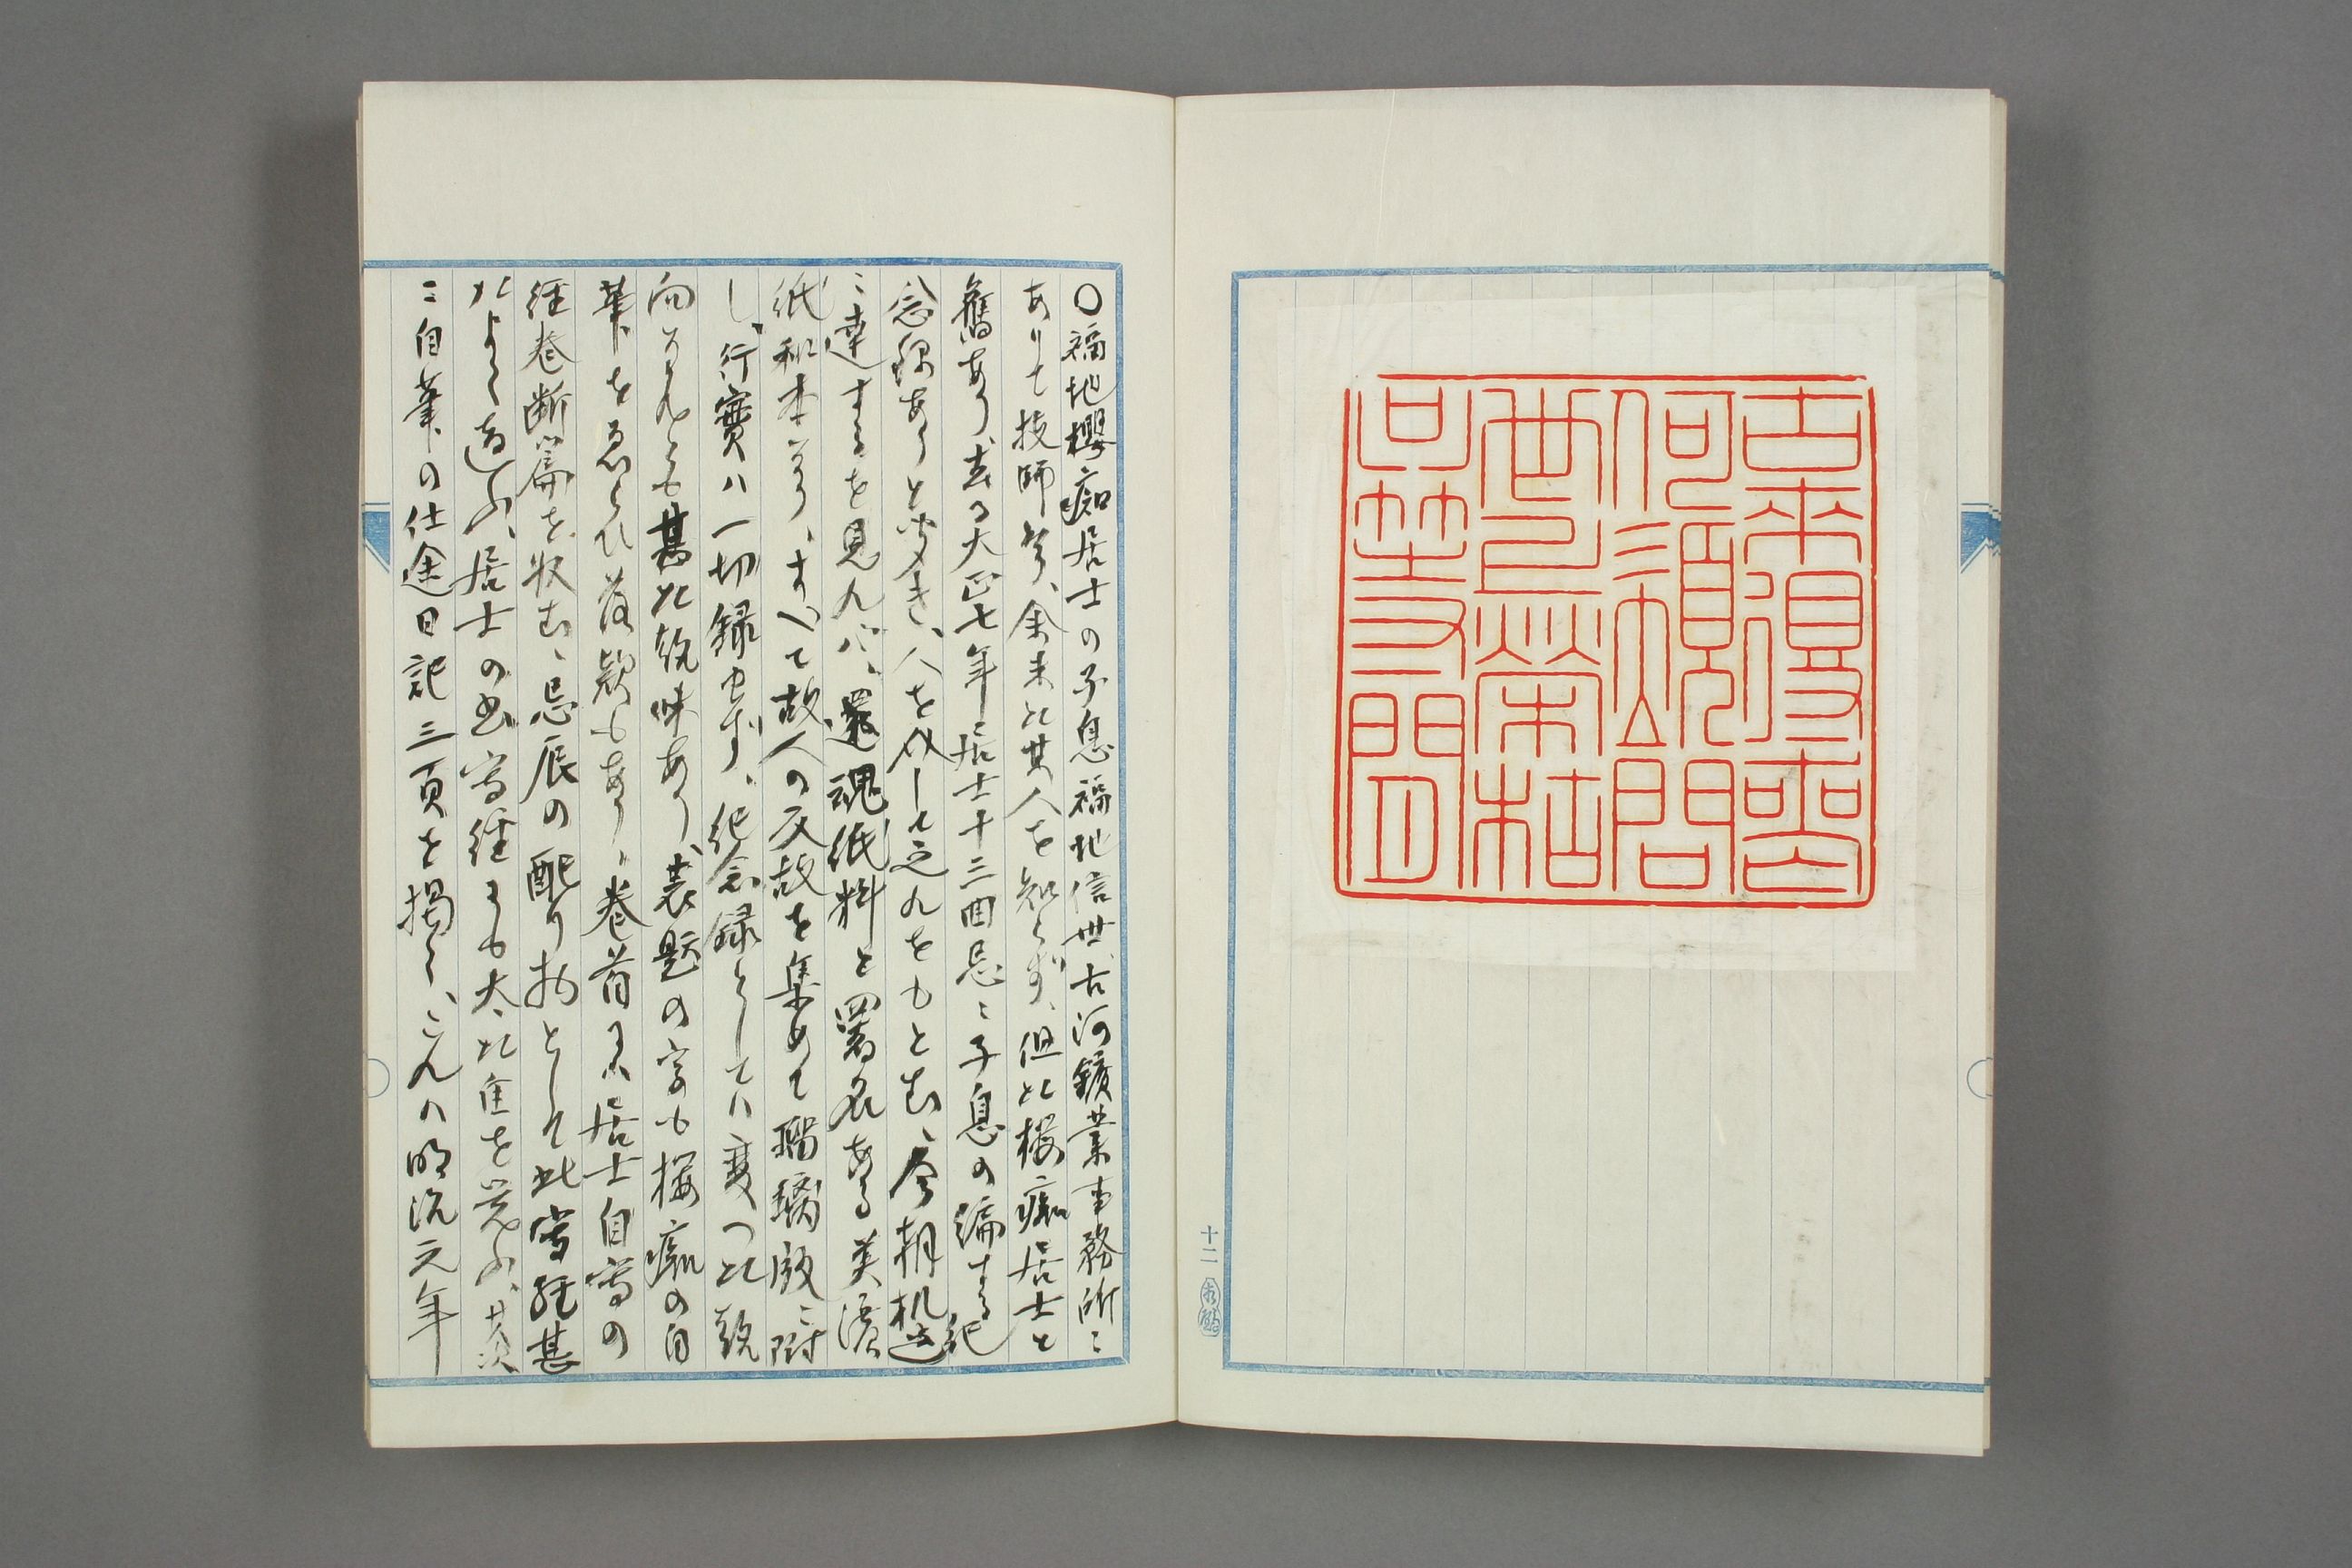 吉凶
何須問
世心榮枯
只此等閒
十二
〇福地櫻痴居士の子息福地信世古河鑛業事務所ニ
ありて技師たり、余未た其人を知らす、但た桜痴居士と
舊あり、去る大正七年居士十三回忌ニ子息の編する紀
念録ありと聞き、人を以て之れをもとむ、今朝机辺
ニ達するを見れハ、還魂紙料と署名ある美濃
紙和本なり、すへて故人の反故を集めて瑠璃版ニ附
し、行實ハ一切録せす、紀念録としてハ変つた趣
向なれとも甚た趣味あり、表題の字も桜痴の自
筆を急らひ落款もあり、巻首にハ居士自寫の
経巻断篇を収む、忌辰の配り物として此寫経甚
たよく適ふ、居士の書寫経にも大た佳を覚ふ、其次
ニ自筆の仕途日記三頁を掲く、これハ明治元年